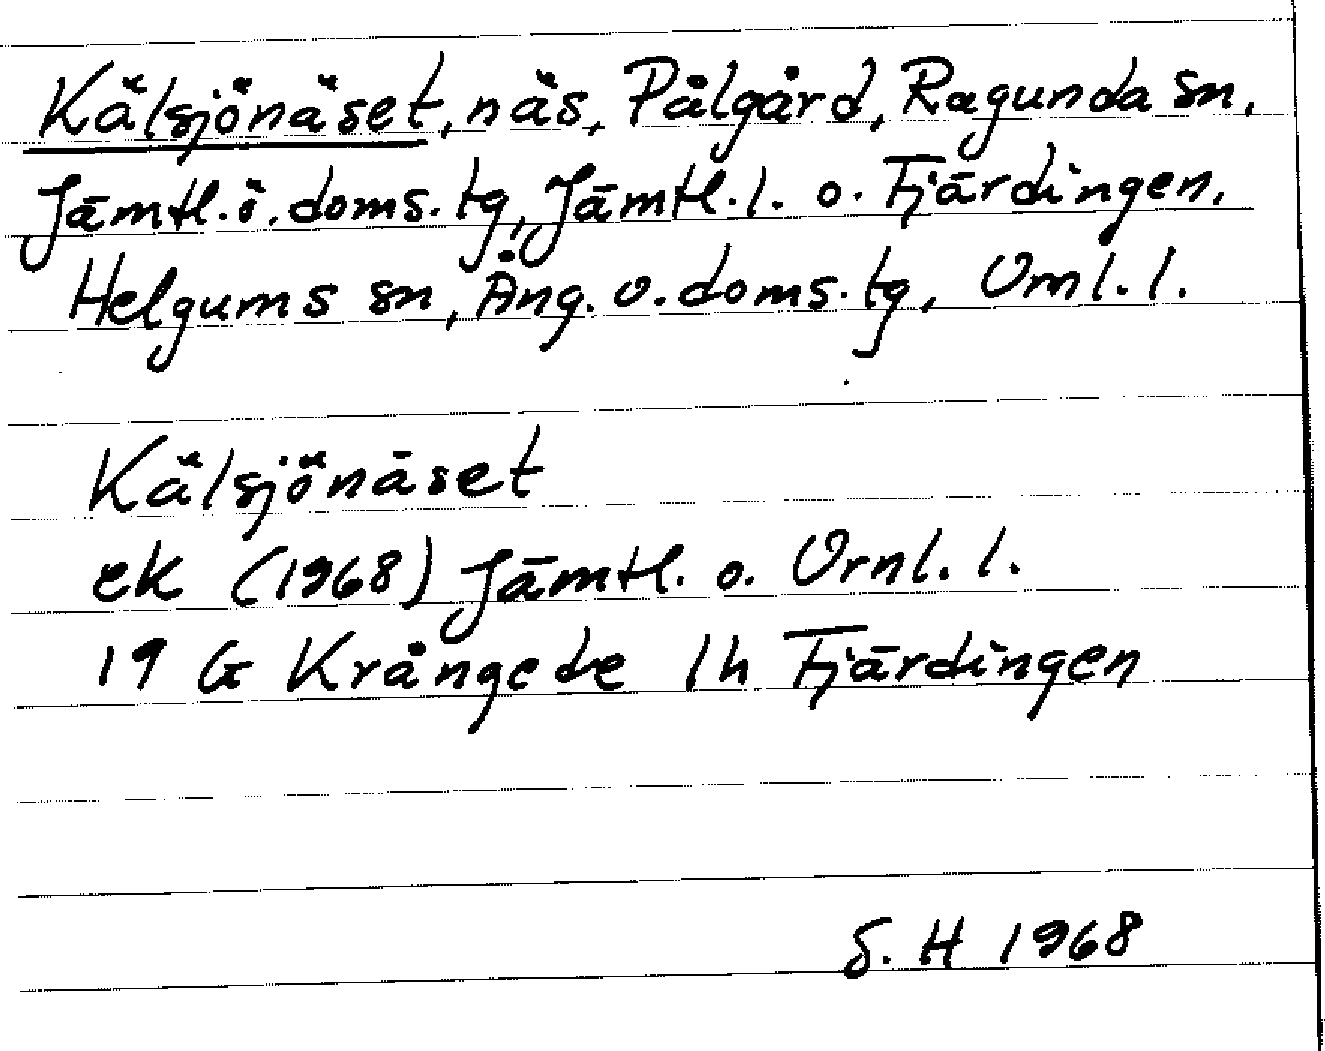 Kälsjönäset, näs, Pålgård, Ragunda sn,
Jämtl. ö. doms. tg, Jämtl. l. o. Fjärdingen,
Helgums sn, Ång. v. doms. tg, Vrnl. l.
Kälsjönäset
ek (1968) Jämtl. o. Vrnl. l.
19 G Krångede 1h Fjärdingen
S. H 1968